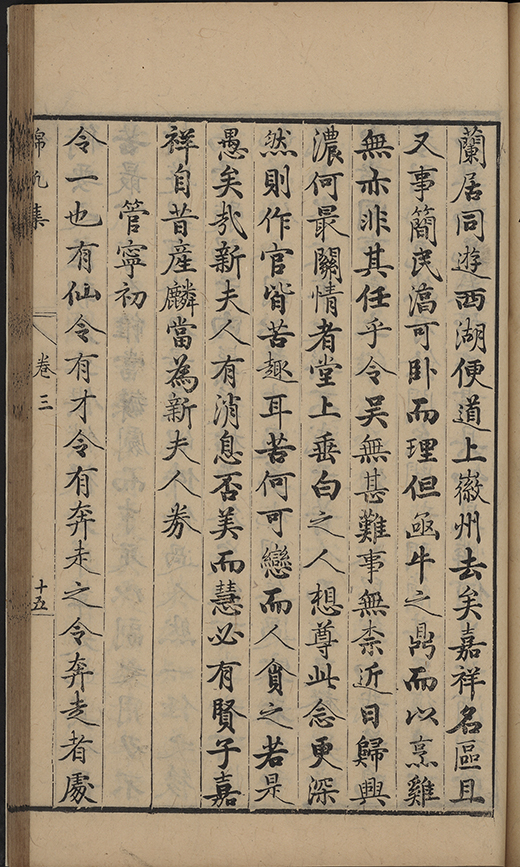 蘭居同遊西湖便道上徽州去矣嘉祥名區且
又事簡民滈可卧而理但凾牛之鼎而以烹雞
無亦非其任乎令吴無甚難事無柰近日歸興
濃何最關情者堂上垂白之人想尊此念更深
然則作官皆苦趣耳苦何可戀而人貪之若是
愚矣哉新夫人有消息否美而慧必有賢子嘉
祥自昔産麟當為新夫人券
管寧初
令一也有仙令有才令有奔走之令奔走者處
錦帆集
卷三
十五